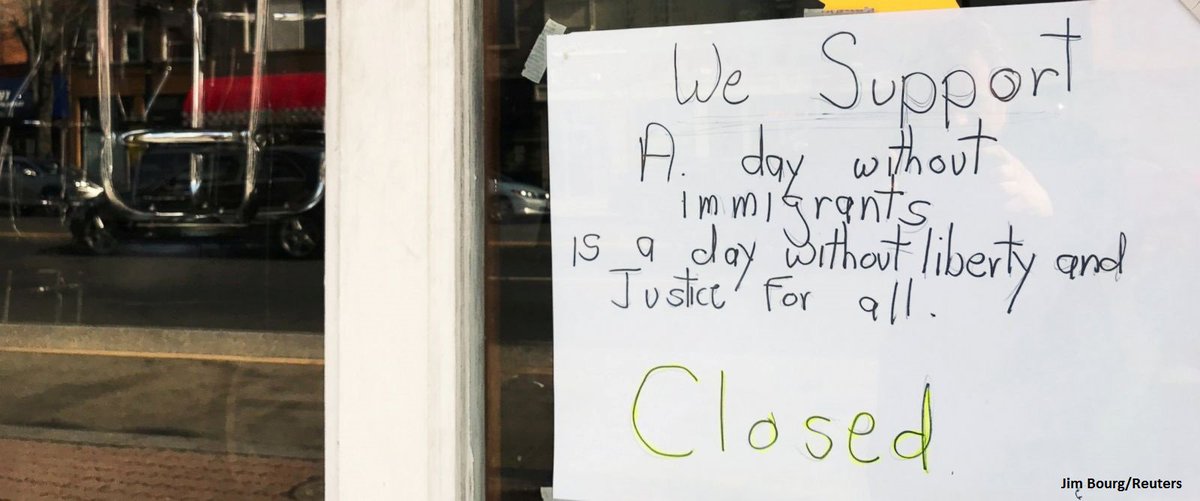 We Support
A. day without
immigrants
is a day without liberty and
Justice For all.
Closed
Jim Bourg/Reuters